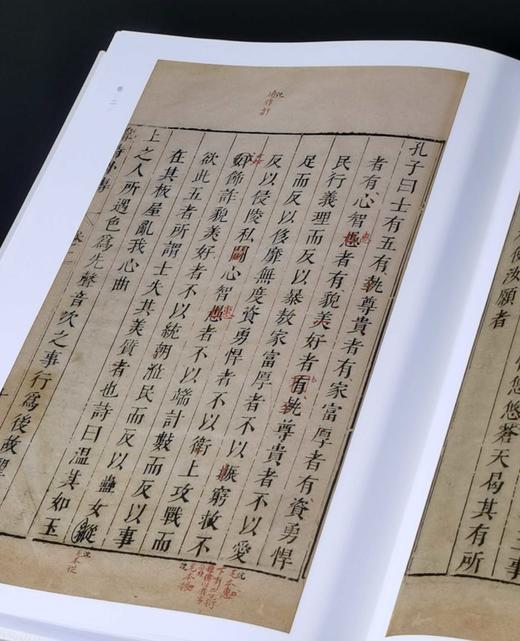 卷二
悠悠蒼天曷其有所
汝願者
孔子曰士有五有埶尊貴者有家富厚者有資勇悍
者有心智愚者有貌美好者有埶尊貴者不以愛
民行義理而反以暴敖家富厚者不以賑窮救不
足而反以侈靡無度資勇悍者不以衛上攻戰而
反以侵陵私鬬心智愚者不以端計數而反以事
姦飾詐貌美好者不以統朝涖民而反以蠱女縱
欲此五者所謂士失其美質者也詩曰溫其如玉
在其板屋亂我心曲
上之人所遇色爲先聲音次之事行爲後故望
惠
惠
毛本惠
毛本從